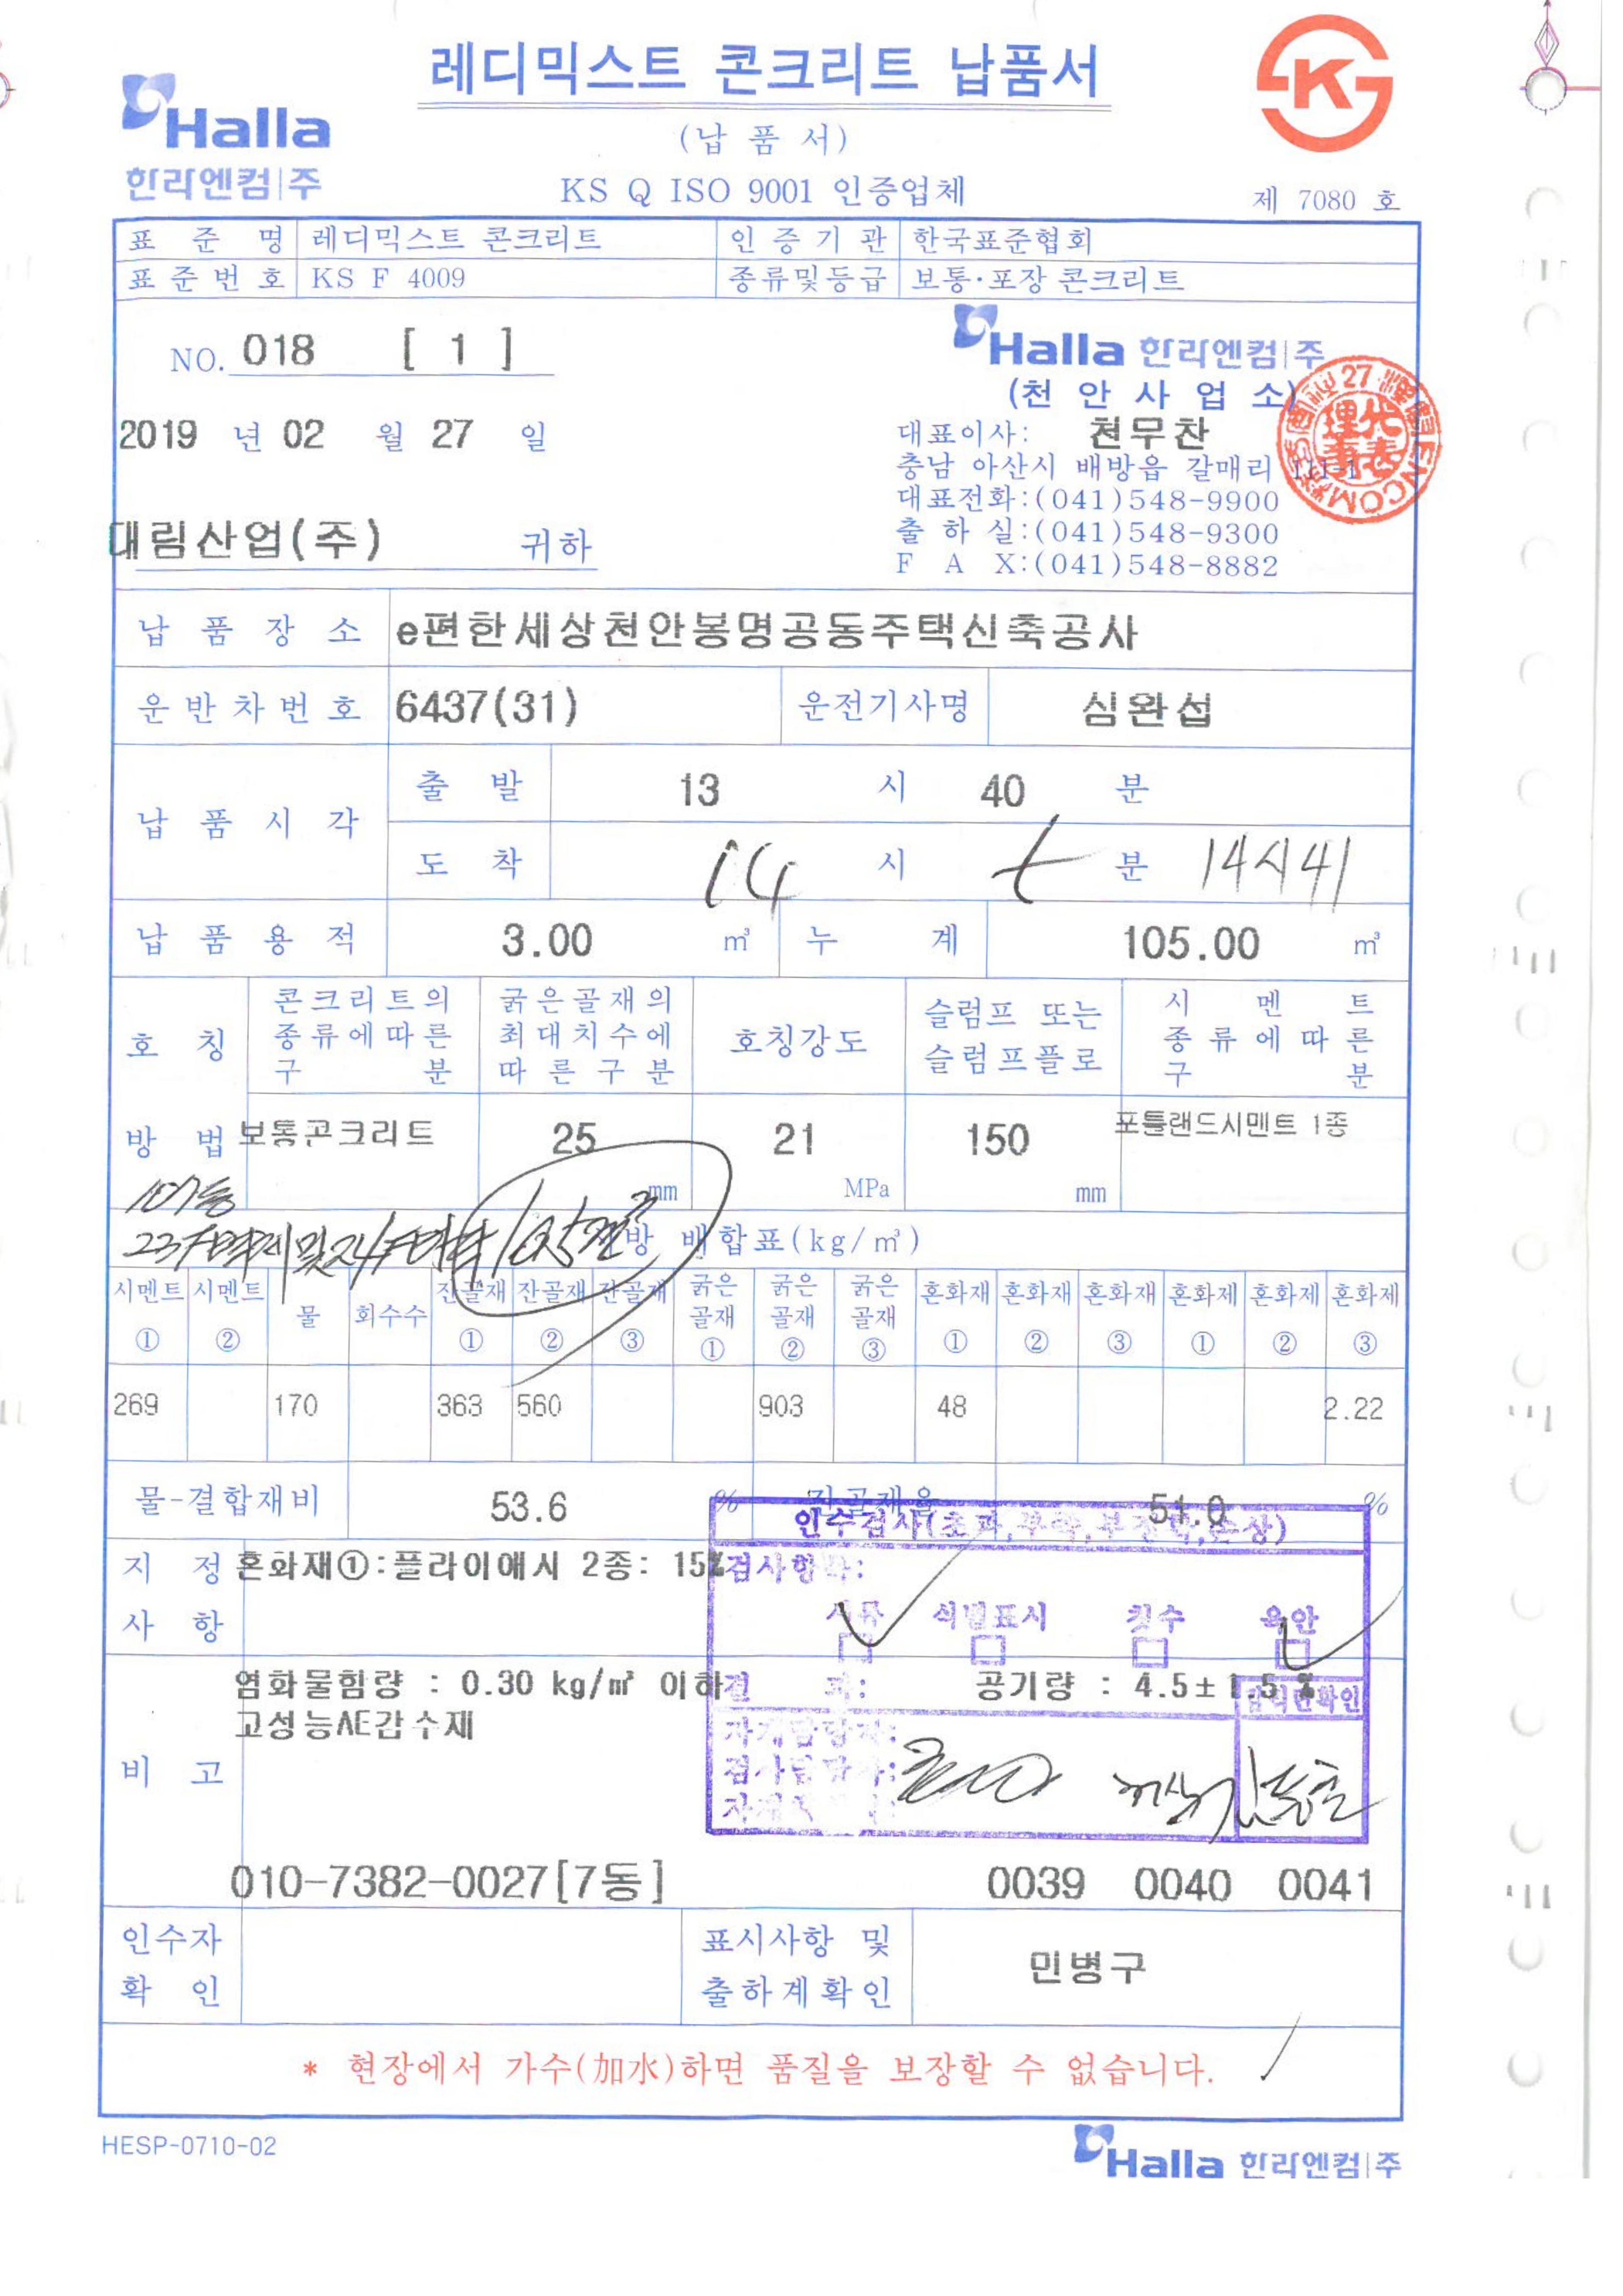 레디믹스트 콘크리트 납품서
Halla
한라엔컴|주
(납 품 서)
KS Q ISO 9001 인증업체
제 7080 호
표 준 명 레디믹스트 콘크리트 인 증 기 관 한국표준협회
표 준 번 호 KS F 4009 종류및등급 보통·포장 콘크리트
NO. 018 [ 1 ]
Halla 한라엔컴|주
(천 안 사 업 소)
2019 년 02 월 27 일
대표이사: 천무찬
충남 아산시 배방읍 갈매리 111-1
대표전화:(041)548-9900
출 하 실:(041)548-9300
F A X:(041)548-8882
대림산업(주) 귀하
납 품 장 소 e편한세상천안봉명공동주택신축공사
운 반 차 번 호 6437(31) 운전기사명 심완섭
납 품 시 각 출 발 13 시 40 분
도 착 14 시 분 14시41
납 품 용 적 3.00 m³ 누 계 105.00 m³
호 칭 방 법
콘크리트의 종류에 따른 구 분
굵은골재의 최대치수에 따 른 구 분
호칭강도
슬럼프 또는 슬럼프플로
시 멘 트 종 류 에 따 른 구 분
보통콘크리트 25 mm 21 MPa 150 mm 포틀랜드시멘트 1종
107동
방 배합표(kg/m³)
시멘트① 시멘트② 물 회수수 잔골재① 잔골재② 잔골재③ 굵은골재① 굵은골재② 굵은골재③ 혼화재① 혼화재② 혼화재③ 혼화제① 혼화제② 혼화제③
269 170 363 560 903 48 2.22
물-결합재비 53.6 % 잔골재율 51.0 %
지 정 사 항 혼화재①:플라이애시 2종: 15%
인수검사(초과,부족,부적합,손상)
검사항목:
서류 식별표시 칫수 육안
비 고
염화물함량 : 0.30 kg/m³ 이하 공기량 : 4.5±1.5 %
고성능AE감수제
결 과:
감리단확인
자재담당자:
검사담당자:
010-7382-0027[7동] 0039 0040 0041
인수자 확 인
표시사항 및 출하계확인 민병구
* 현장에서 가수(加水)하면 품질을 보장할 수 없습니다.
HESP-0710-02
Halla 한라엔컴|주